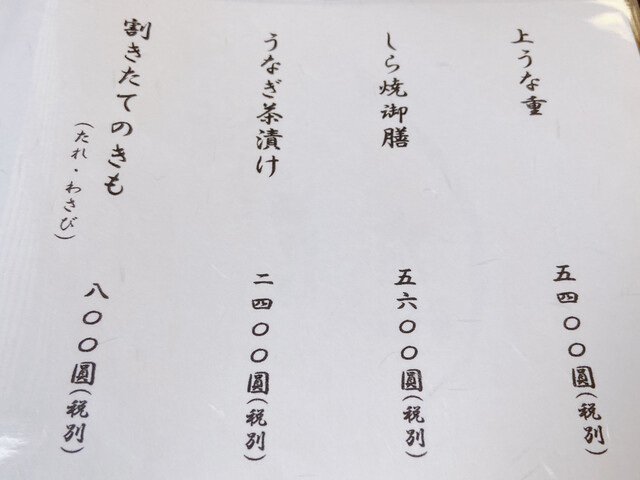 上うな重
五四〇〇圓(税別)
しら焼御膳
五六〇〇圓(税別)
うなぎ茶漬け
二四〇〇圓(税別)
割きたてのきも
(たれ・わさび)
八〇〇圓(税別)